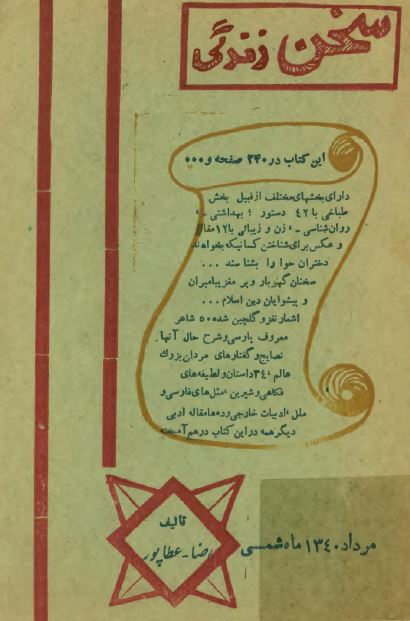 سخن زندگی
این کتاب در ۲۴۰ صفحه و...
دارای بخشهای مختلف از قبیل بخش
طباخی با ٤٢ دستور ؛ بهداشتی ـ ،
روان شناسی ـ ، زن و زیبائی با ۱۲ مقاله
و عکس برای شناختن کسانیکه بخواهند
دختران حوا را بشناسند ...
سخنان گهربار و پر مغز پیامبران
و پیشوایان دین اسلام ...
اشعار نغز و گلچین شده ٥٠ شاعر
معروف پارسی و شرح حال آنها ،
نصایح و گفتارهای مردان بزرك
عالم ، ٣٤ داستان و لطیفه های
فکاهی و شیرین ، مثل های فارسی و
ملل ، ادبیات خارجی و ده ها مقاله ادبی
دیگر همه در این کتاب درهم آمیخته
تالیف
رضا - عطاپور
مرداد ۱۳٤۰ ماه شمسی